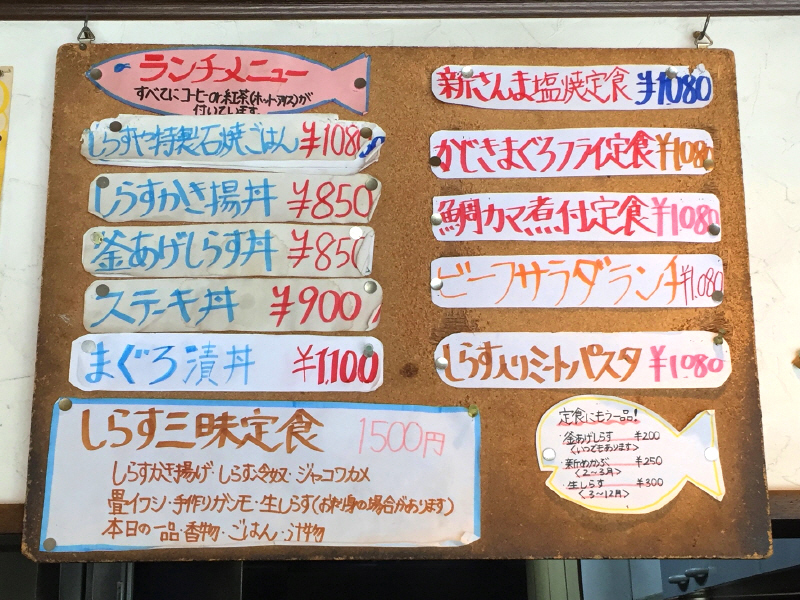 ランチメニュー
すべてにコーヒーor紅茶(ホットorアイス)が
付いています。
しらすや特製石焼ごはん ¥1080
しらすかき揚丼 ¥850
釜あげしらす丼 ¥850
ステーキ丼 ¥900
まぐろ漬丼 ¥1,100
しらす三昧定食 1500円
しらすかき揚げ・しらす冷奴・ジャコワカメ
畳イワシ・手作りガンモ・生しらす(お刺身の場合があります)
本日の一品・香物・ごはん・汁物
新さんま塩焼定食 ¥1080
かじきまぐろフライ定食 ¥1080
鯛カマ煮付定食 ¥1080
ビーフサラダランチ ¥1,080
しらす入りミートパスタ ¥1080
定食にもう一品!
・釜あげしらす ¥200
<いつでもあります>
・新めかぶ ¥250
<2~3月>
・生しらす ¥300
<3~12月>